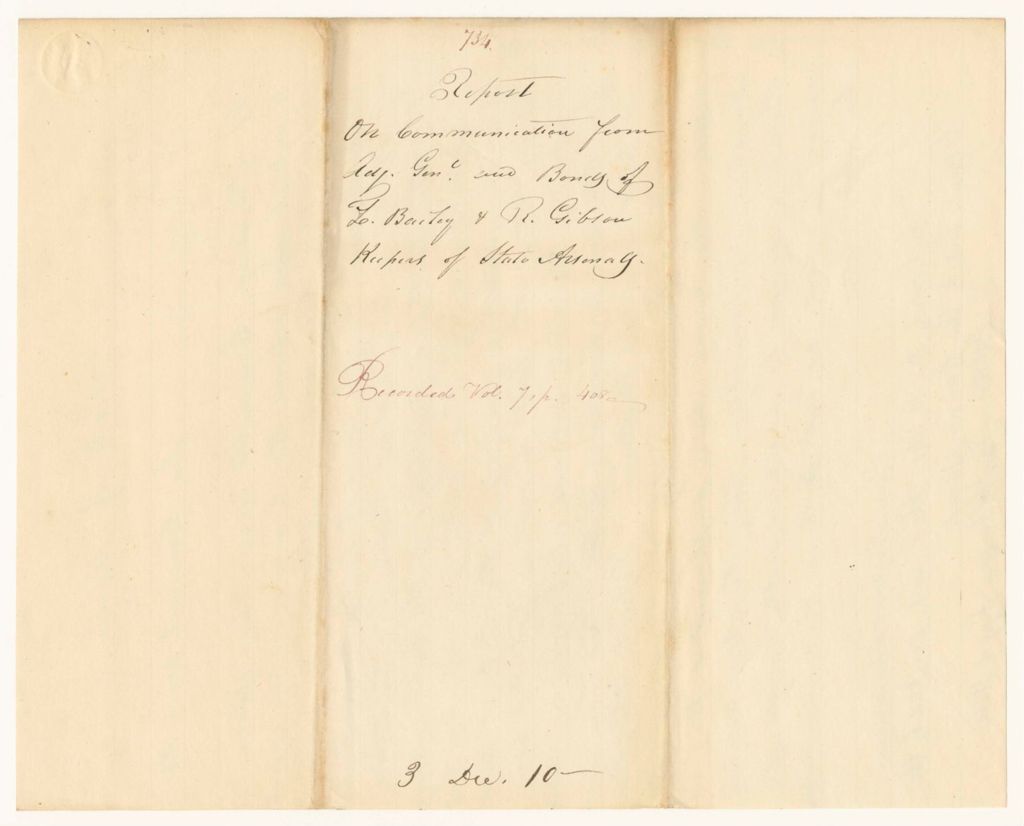 734.
Report
On Communication from
Adj. Genl. and Bonds of
L. Bailey & R. Gibson
Keepers of State Arsenals.
Recorded Vol. 7, p. 408
3 Dec. 10